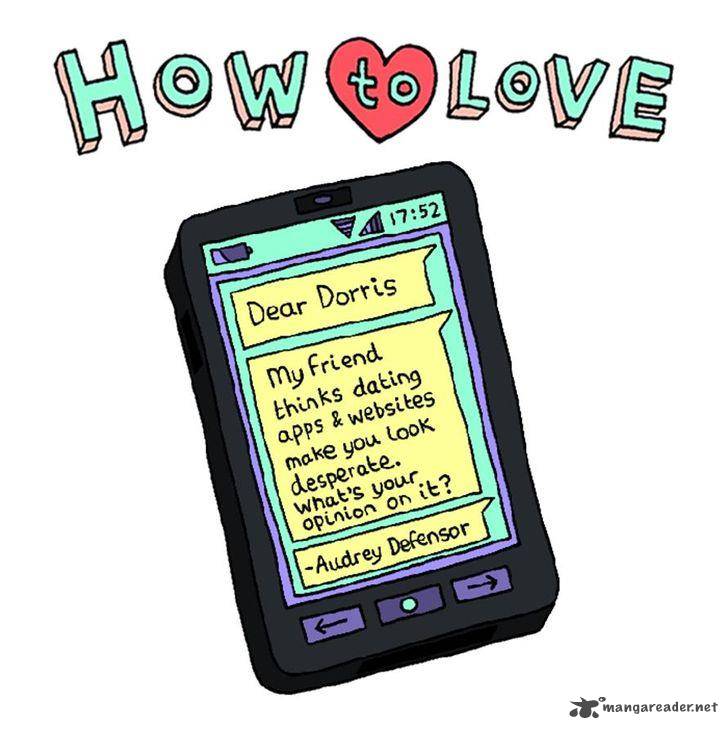 HOW to LOVE
17:52
Dear Dorris
My friend
thinks dating
apps & websites
make you look
desperate.
What's your
opinion on it?
-Audrey Defensor
mangareader.net